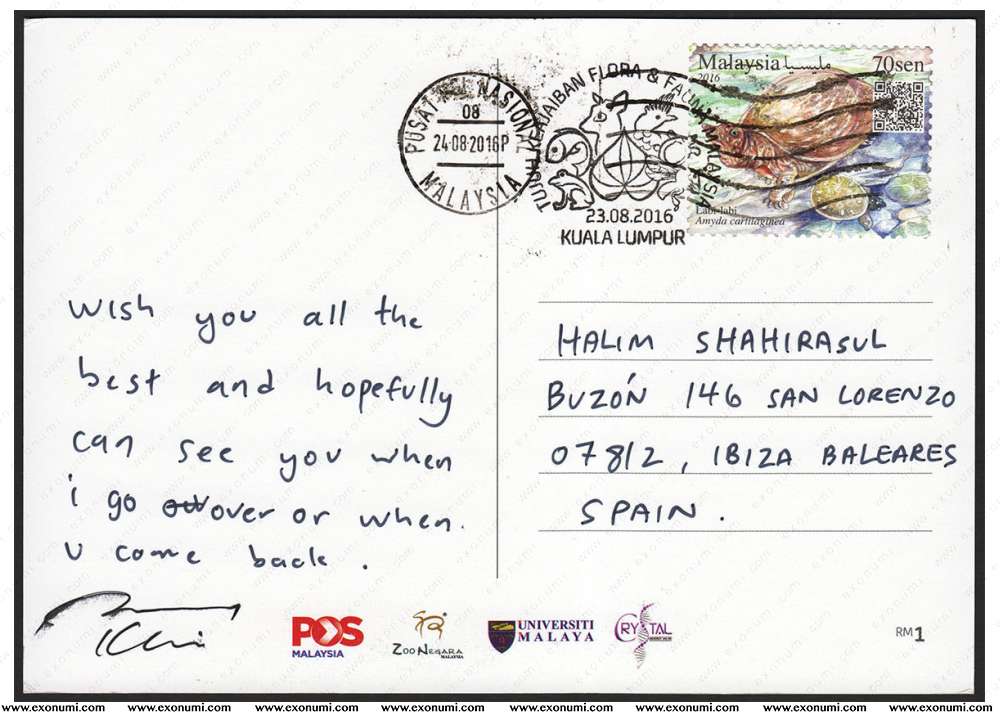 PUSAT MEL NASIONAL
08
24-08-2016P
MALAYSIA
TUJUH KEAJAIBAN FLORA & FAUNA MALAYSIA
23.08.2016
KUALA LUMPUR
Malaysia مليسيا 70sen
2016
Labi-labi
Amyda cartilaginea
Wish you all the
best and hopefully
can see you when
i go over or when.
u come back.
HALIM SHAHIRASUL
BUZÓN 146 SAN LORENZO
07812, IBIZA BALEARES
SPAIN.
POS
MALAYSIA
ZOO NEGARA
MALAYSIA
UNIVERSITI
MALAYA
CRYSTAL
RM1
www.exonumi.com www.exonumi.com www.exonumi.com www.exonumi.com www.exonumi.com www.exonumi.com www.exonumi.com www.exonumi.com